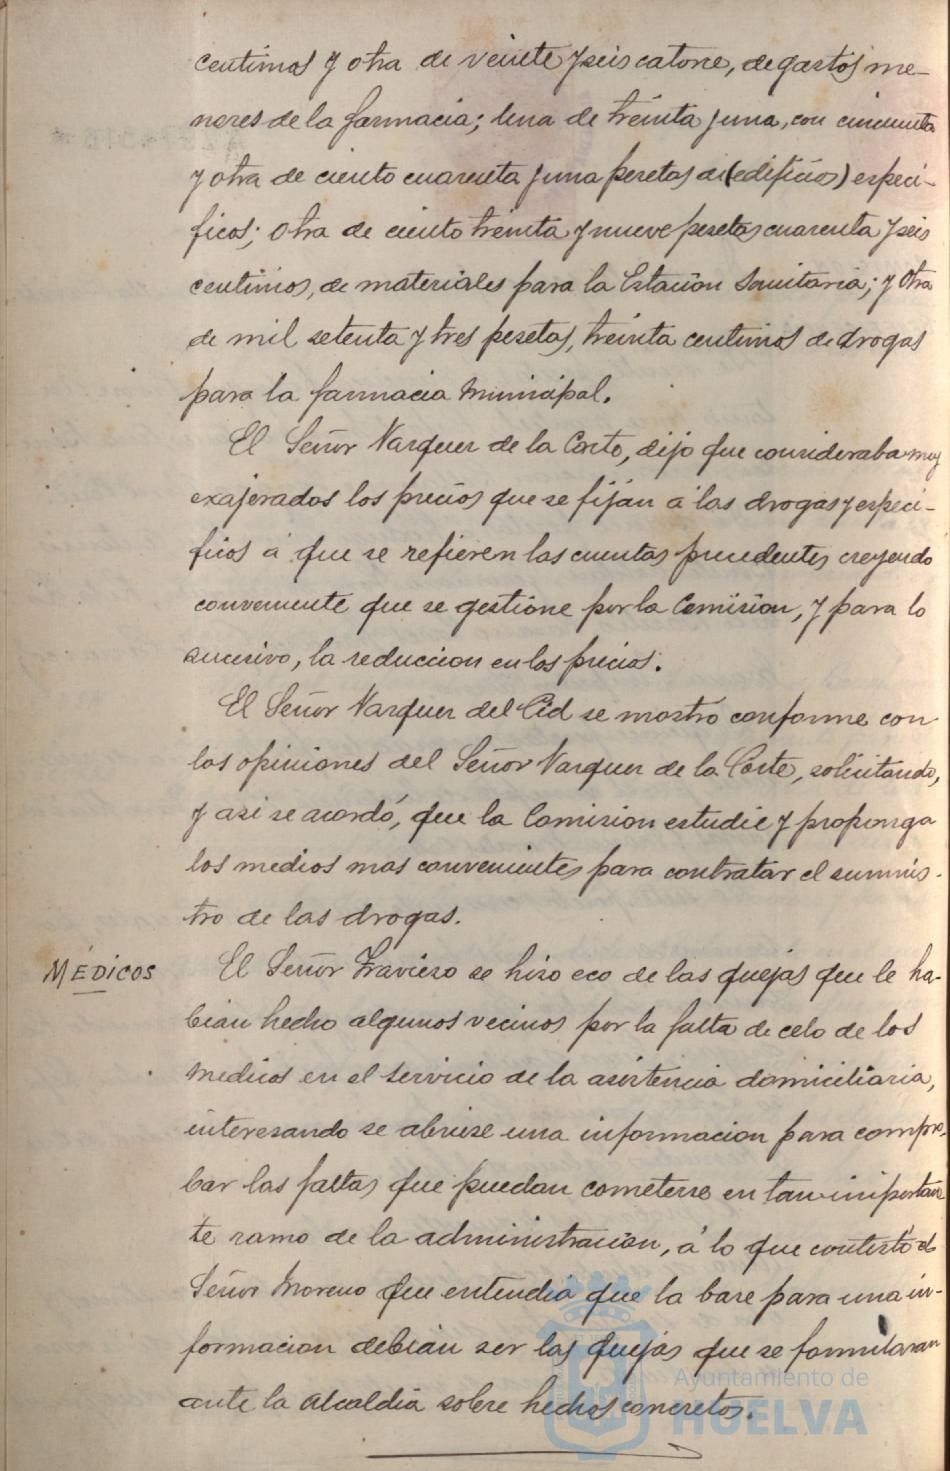 centimos y otra de veinte y seis catorce, de gastos me-
nores de la farmacia; una de treinta y una, con cincuenta
y otra de ciento cuarenta y una pesetas de (edificios) especi-
ficos; otra de ciento treinta y nueve pesetas cuarenta y seis
centimos, de materiales para la Estación Sanitaria; y otra
de mil setenta y tres pesetas, treinta centimos de drogas
para la farmacia Municipal.
El Señor Vazquez de la Corte, dijo que consideraba muy
exajerados los precios que se fijan á las drogas y especi-
ficos á que se refieren las cuentas precedentes creyendo
conveniente que se gestione por la Comisión, y para lo
sucesivo, la reduccion en los precios.
El Señor Vazquez del Cid se mostró conforme con
las opiniones del Señor Vazquez de la Corte, solicitando,
y asi se acordó, que la Comision estudie y proponga
los medios mas convenientes para contratar el suminis-
tro de las drogas.
MÉDICOS
El Señor Travieso se hizo eco de las quejas que le ha-
bian hecho algunos vecinos por la falta de celo de los
medicos en el servicio de la asistencia domiciliaria,
interesando se abriese una informacion para compro-
bar las faltas que puedan cometerse en tan importan
te ramo de la administración, á lo que contestó el
Señor Moreno que entendia que la base para una in-
formacion debian ser las quejas que se formularan
ante la Alcaldia sobre hechos concretos.
Ayuntamiento de
HUELVA